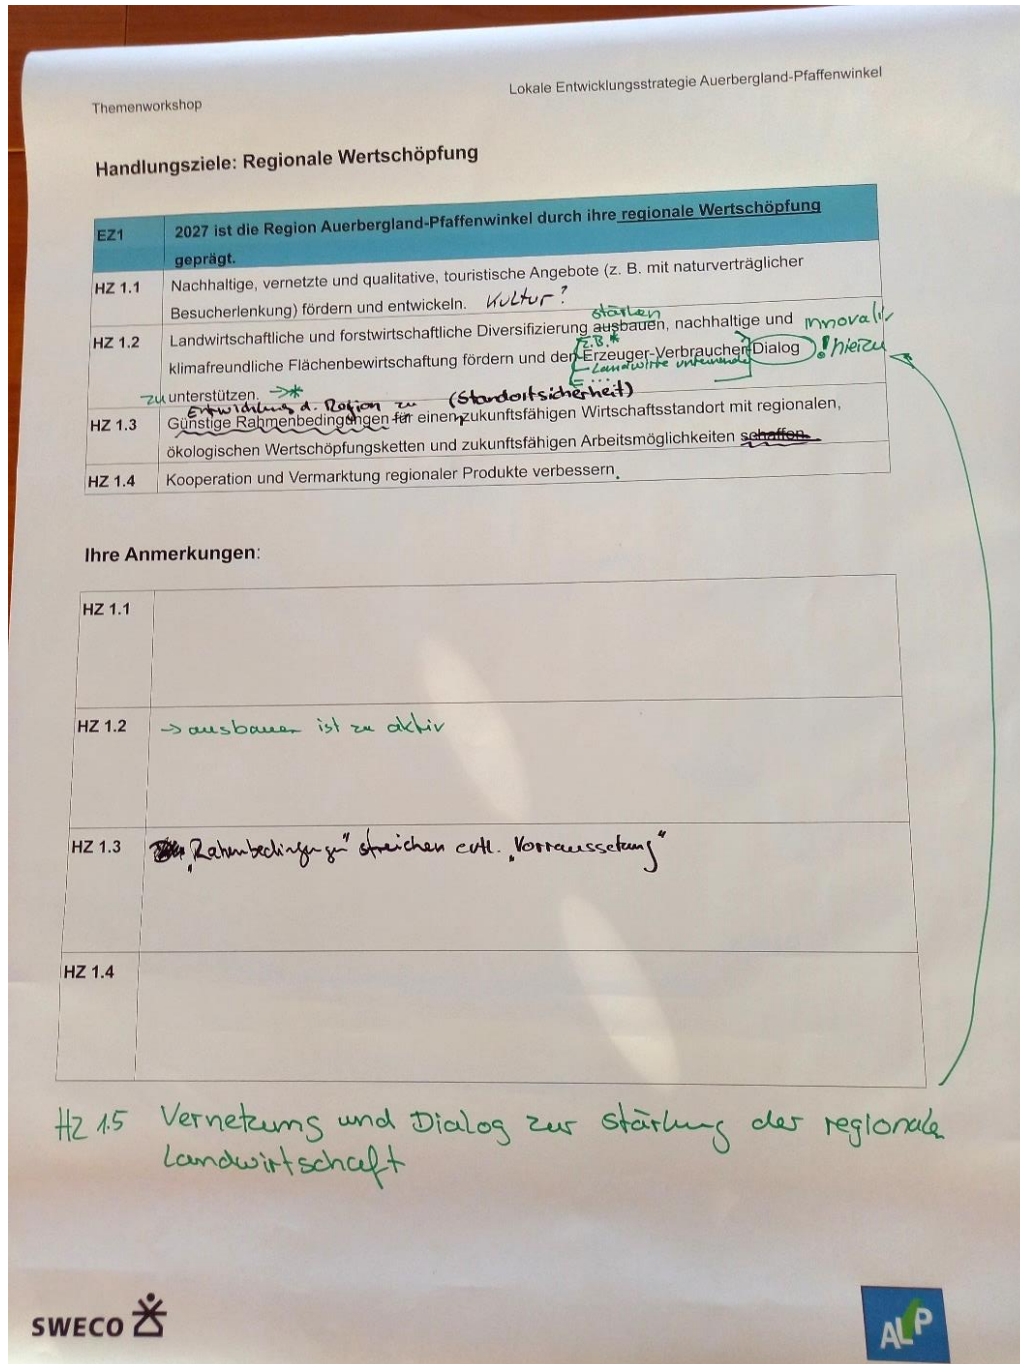 Themenworkshop
Lokale Entwicklungsstrategie Auerbergland-Pfaffenwinkel
Handlungsziele: Regionale Wertschöpfung
EZ1
2027 ist die Region Auerbergland-Pfaffenwinkel durch ihre regionale Wertschöpfung
geprägt.
HZ 1.1
Nachhaltige, vernetzte und qualitative, touristische Angebote (z. B. mit naturverträglicher
Besucherlenkung) fördern und entwickeln. Kultur?
stärken
HZ 1.2
Landwirtschaftliche und forstwirtschaftliche Diversifizierung ausbauen, nachhaltige und
z.B.*
klimafreundliche Flächenbewirtschaftung fördern und den Erzeuger-Verbraucher-Dialog ! hierzu
- Landwirte untereinander
zu unterstützen. →*
Entwicklung d. Region zu (Standortsicherheit)
HZ 1.3
Günstige Rahmenbedingungen für einen zukunftsfähigen Wirtschaftsstandort mit regionalen,
ökologischen Wertschöpfungsketten und zukunftsfähigen Arbeitsmöglichkeiten schaffen.
HZ 1.4
Kooperation und Vermarktung regionaler Produkte verbessern.
Ihre Anmerkungen:
HZ 1.1
HZ 1.2
→ ausbauen ist zu aktiv
HZ 1.3
„Rahmenbedingungen" streichen evtl. „Vorraussetzung"
HZ 1.4
HZ 1.5 Vernetzung und Dialog zur Stärkung der regionalen
Landwirtschaft
SWECO
ALP